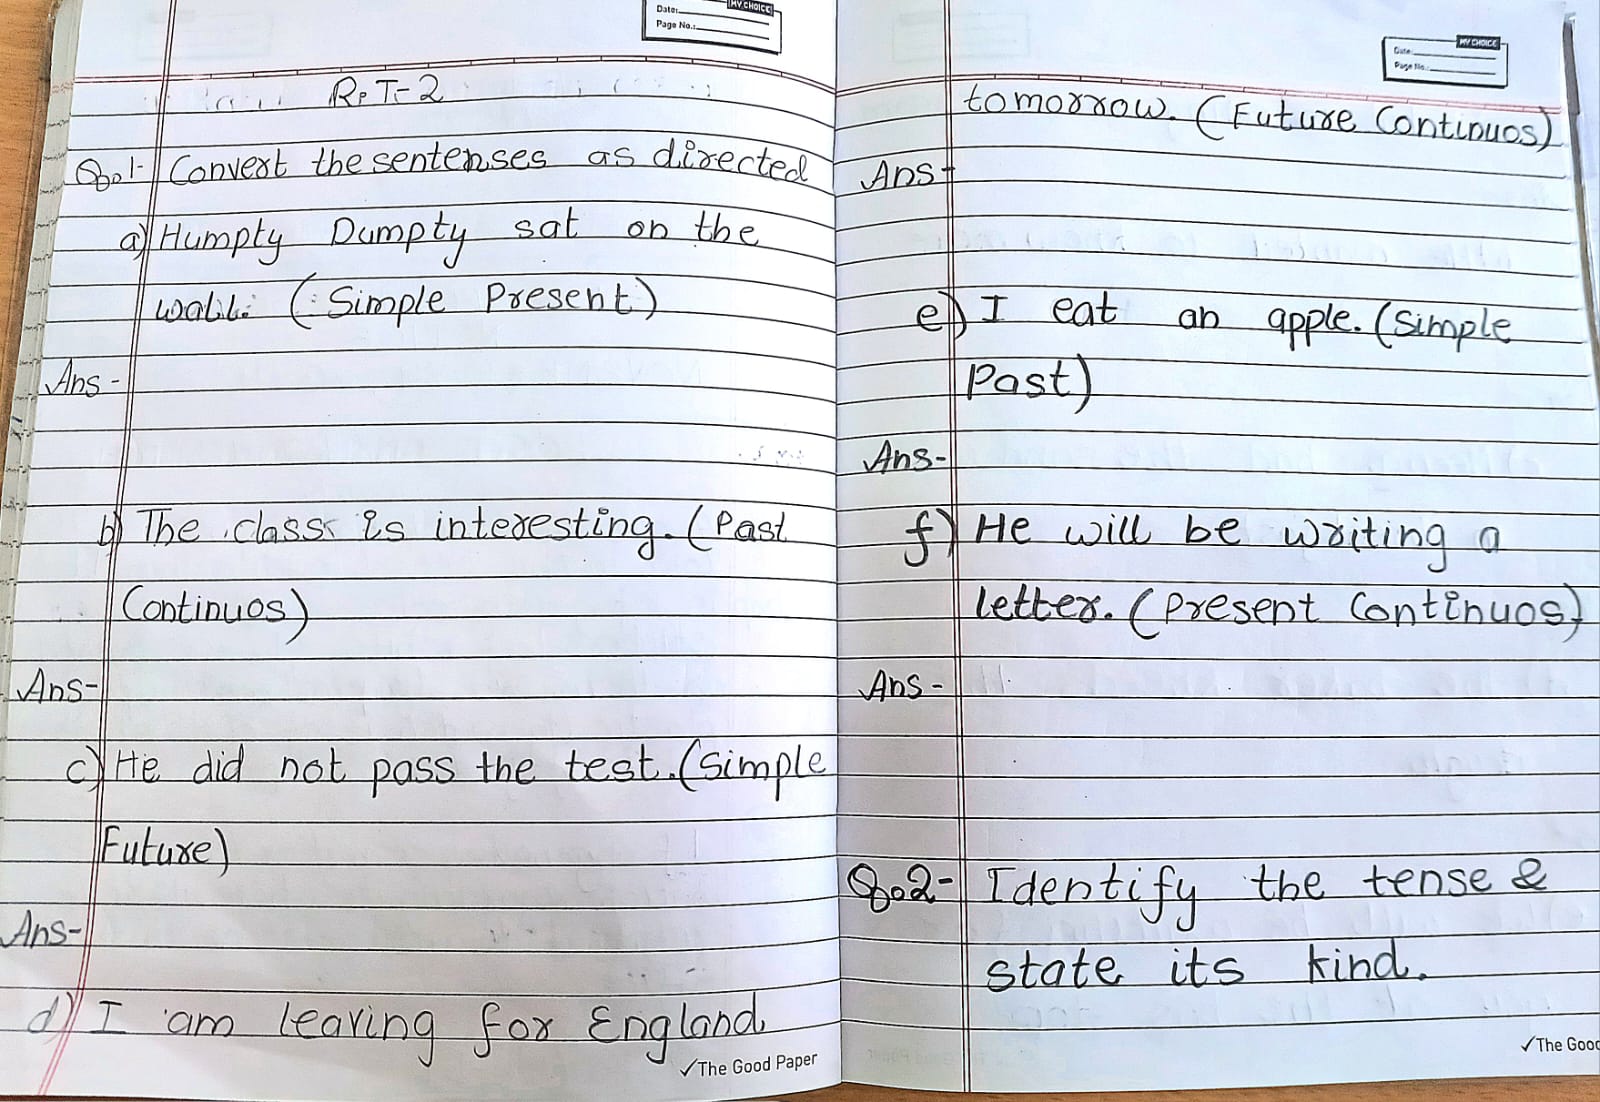 Date:
MY CHOICE
Page No.:
R. T-2
Q.1- Convert the sentenses as directed
a) Humpty Dumpty sat on the
wall. (Simple Present)
Ans-
b) The class is interesting. (Past
Continuos)
Ans-
c) He did not pass the test. (Simple
Future)
Ans-
d) I am leaving for England
✓The Good Paper
Date:
MY CHOICE
Page No.:
tomorrow. (Future Continuos)
Ans-
e) I eat an apple. (Simple
Past)
Ans-
f) He will be writing a
letter. (Present Continuos)
Ans-
Q.2- Identify the tense &
state its kind.
✓The Good